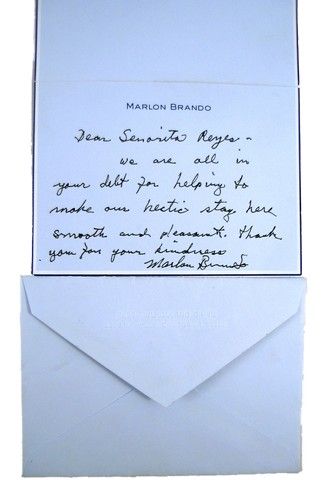 MARLON BRANDO
Dear Senorita Reyes -
we are all in
your debt for helping to
make our hectic stay here
smooth and pleasant. Thank
you for your kindness
Marlon Brando